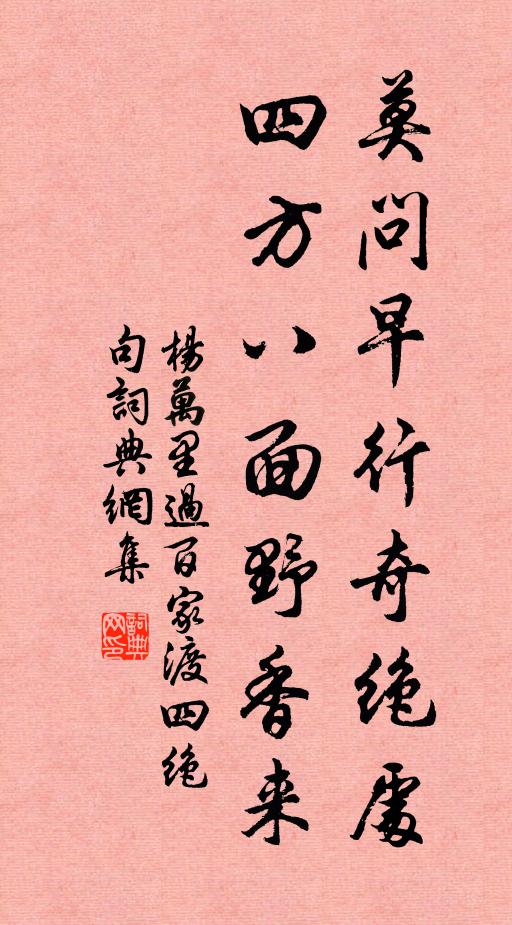 莫問早行奇絶處
四方八面野香来
楊萬里過百家渡四絶
句詞典網集
詞典网印